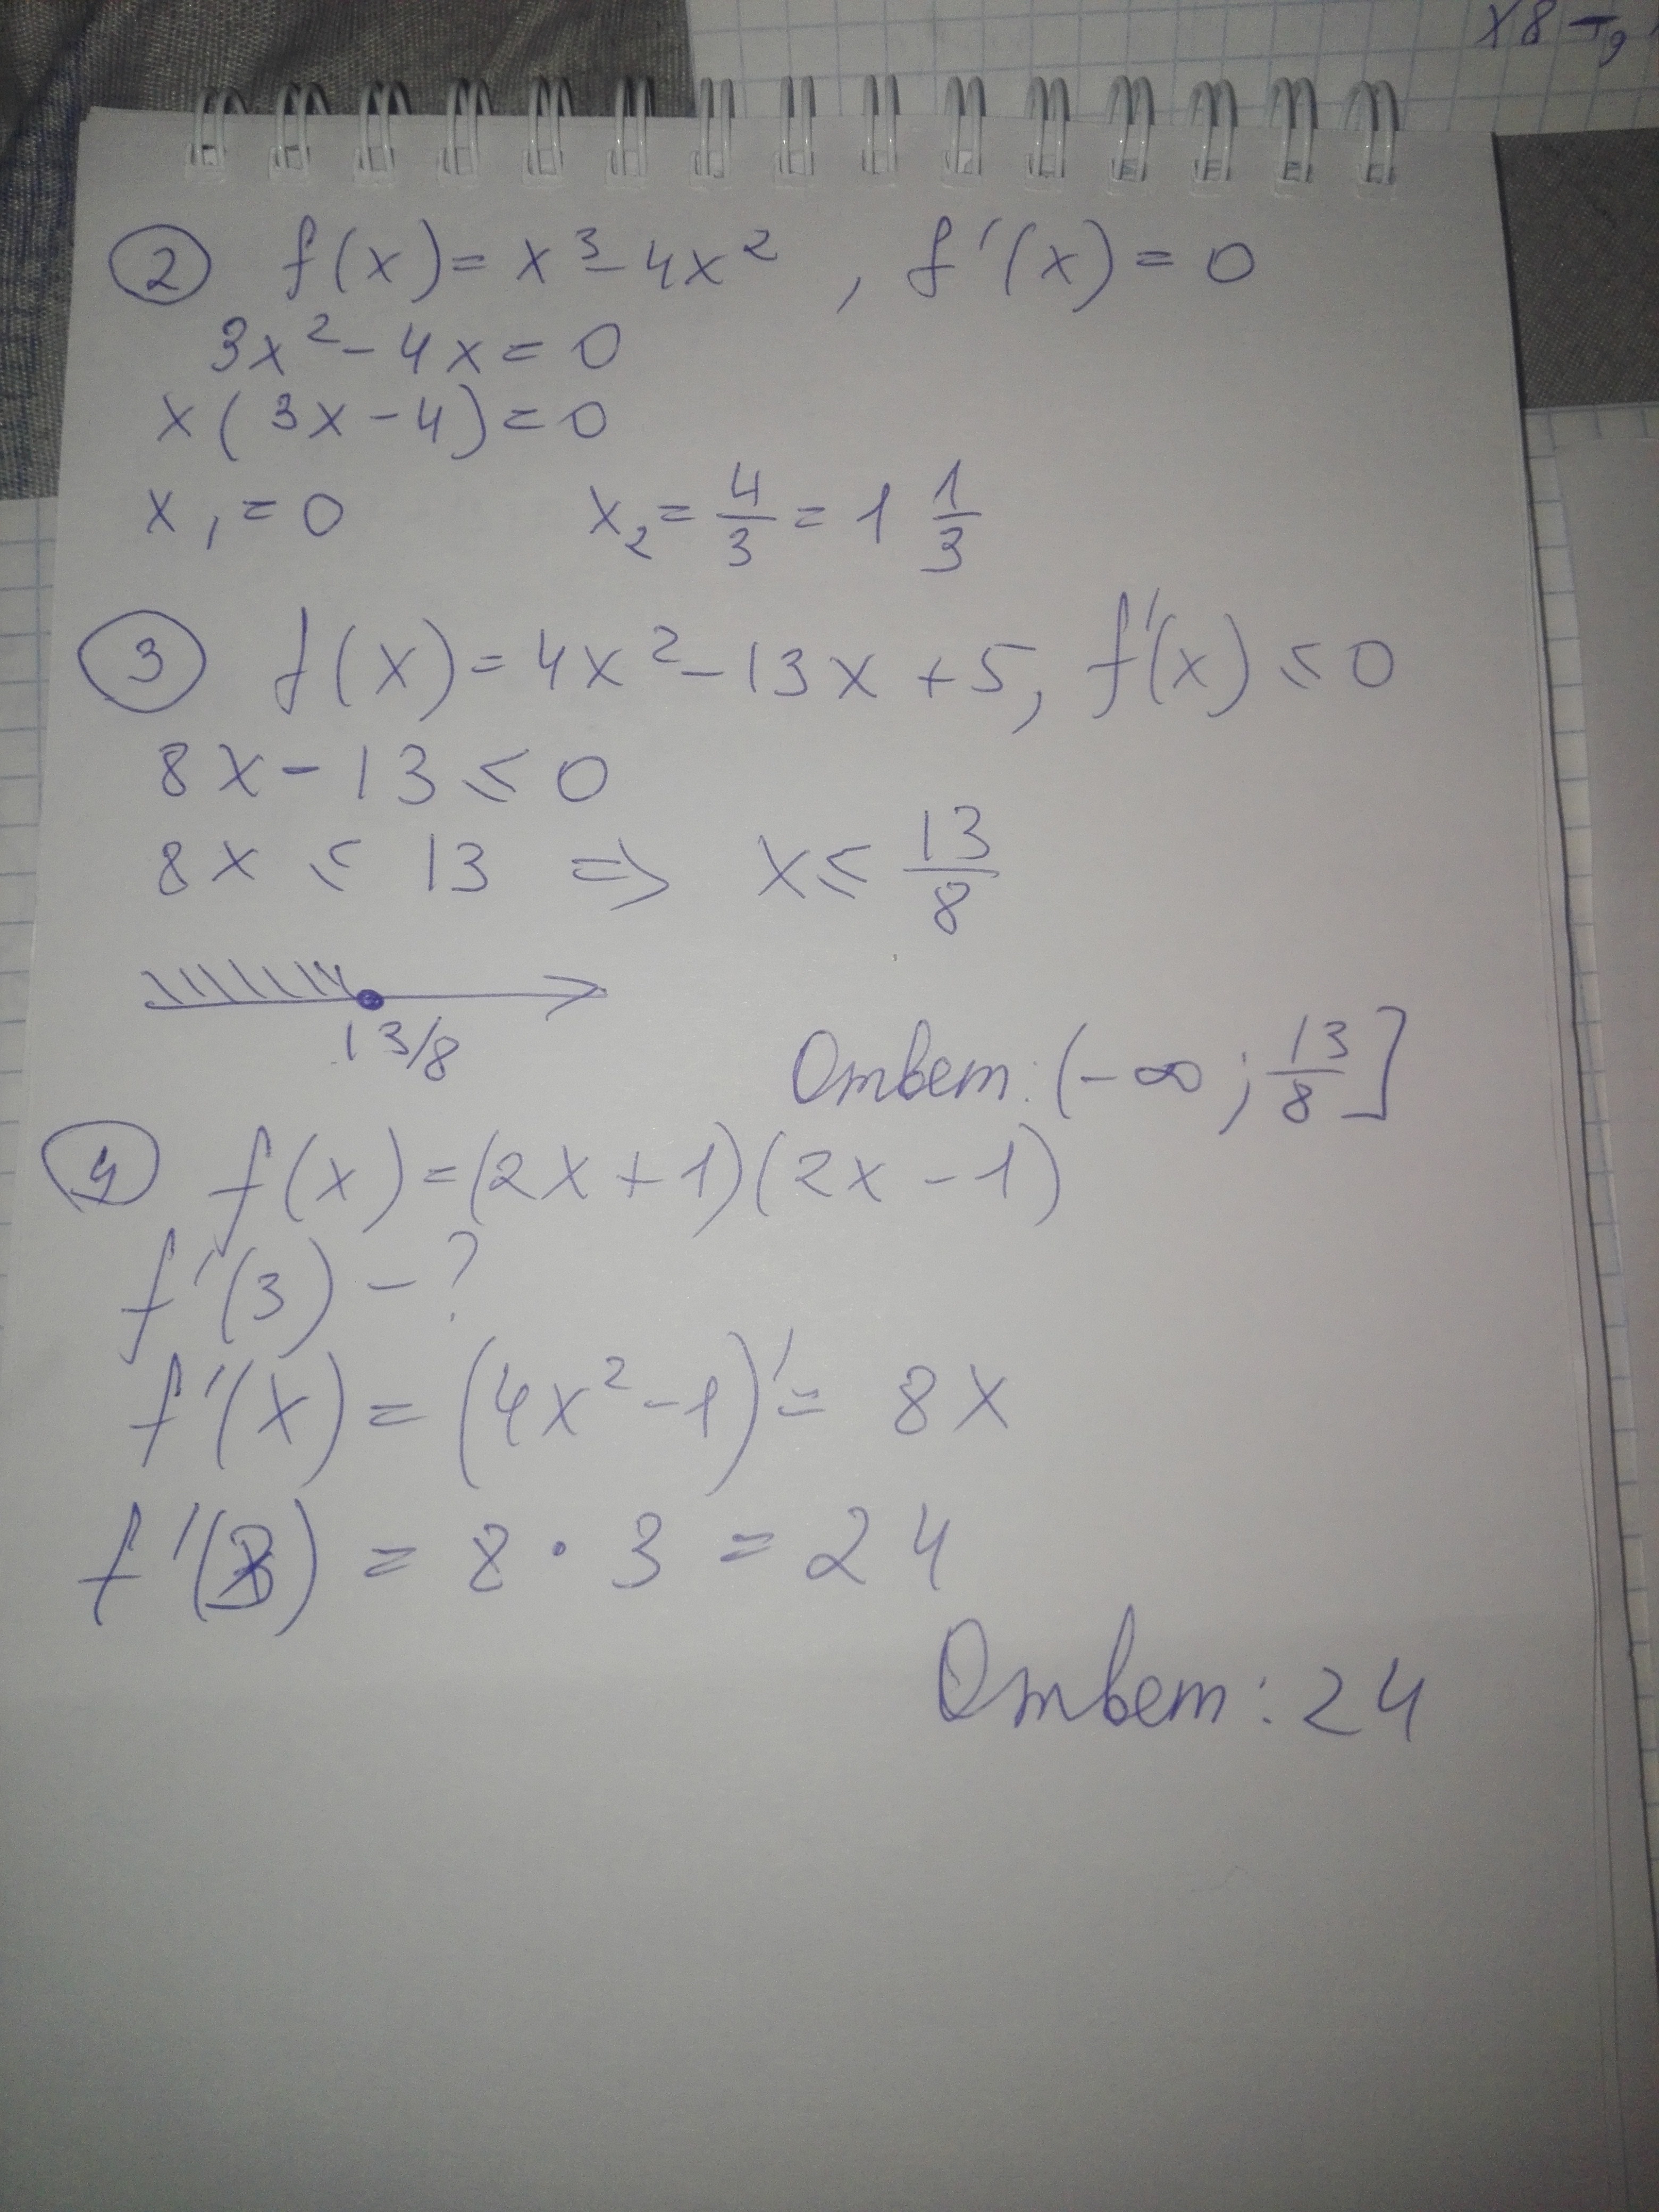 ② f(x) = x³ - 4x², f'(x) = 0
3x² - 4x = 0
x(3x - 4) = 0
x₁ = 0 x₂ = 4/3 = 1 1/3
③ f(x) = 4x² - 13x + 5, f'(x) ≤ 0
8x - 13 ≤ 0
8x ≤ 13 ⇒ x ≤ 13/8
13/8
Ответ: (-∞; 13/8]
④ f(x) = (2x + 1)(2x - 1)
f'(3) - ?
f'(x) = (4x² - 1)' = 8x
f'(3) = 8 · 3 = 24
Ответ: 24